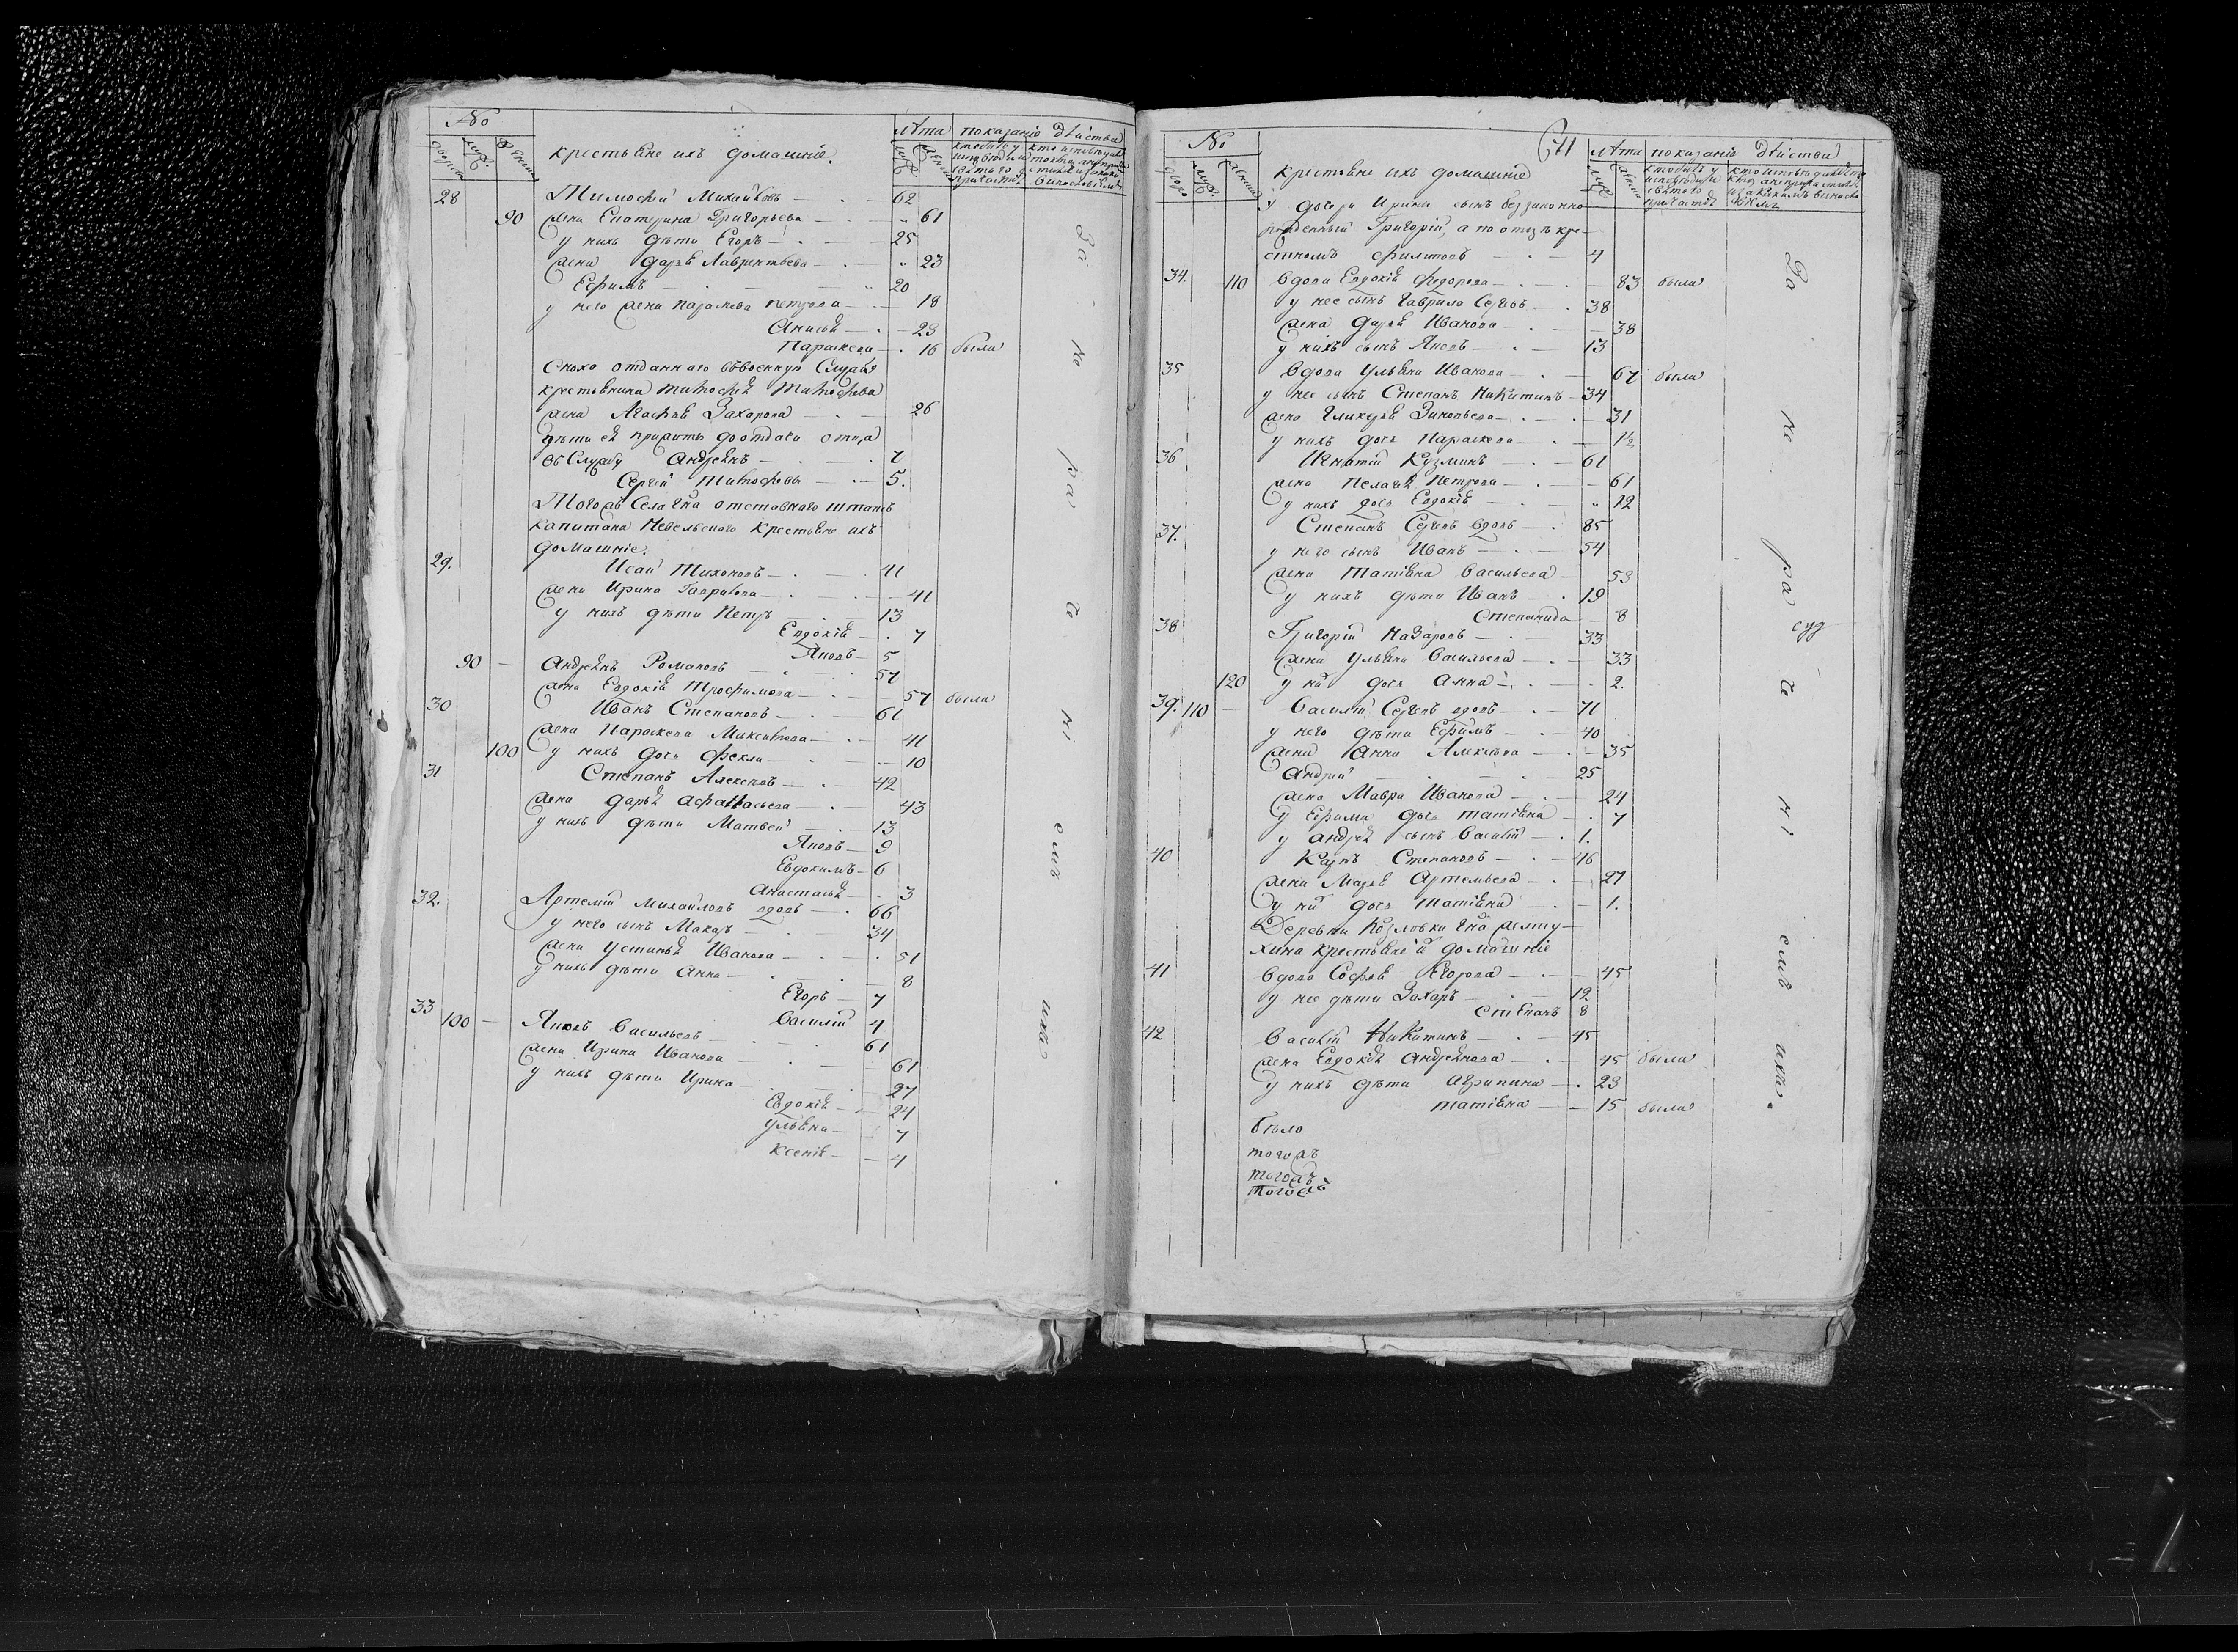 №
крестьяне ихъ домашніе.
лѣта показаніе дѣйства
28 Тимофей Михайловъ 62
90 жена Екатерина Григорьева 61
у нихъ дѣти Егоръ 25
жена Дарья Лаврентьева 23
Ефимъ 20
у него жена Параскева Петрова 18
Анисья 23
Параскева 16 была
Сноха отданнаго въ военную службу
крестьянина Тимофея Тимофеева
жена Агафья Захарова 26
дѣти ея прижиты до отдачи отца
въ службу Андреянъ 7
Сергѣй Тимофеевы 5.
Тогожъ села Гна отставного штапсъ
капитана Невельского крестьяне ихъ
домашніе.
29. Исай Тихоновъ 41
жена Ирина Гаврилова 41
у нихъ дѣти Петръ 13
Евдокія 7
Яковъ 5
90 Андреянъ Романовъ 57
жена Евдокія Трофимова 57 была
30 Иванъ Степановъ 61
жена Параскева Максимова 41
100 у нихъ дочь Фекла 10
31 Степанъ Алексеевъ 42
жена Дарья Афанасьева 43
у нихъ дѣти Матвей 13
Яковъ 9
Евдокимъ 6
Анастасья 3
32. Артемій Михайловъ вдовъ 66
у него сынъ Макаръ 34
жена Устинья Иванова 31
у нихъ дѣти Анна 8
Егоръ 7
Василій 4
33 100 Яковъ Васильевъ 61
жена Ирина Иванова 61
у нихъ дѣти Ирина 27
Евдокія 24
Ульяна 7
Ксенія 4
За не ра че ні емъ ихъ
№
крестьяне ихъ домашніе
лѣта показаніе дѣйства
у дочери Ирины сынъ беззаконно
рожденный Григорій, а по отцѣ кре-
стномъ Филиповъ 4
34. 110 вдова Евдокія Федорова 83 была
у нее сынъ Гаврило Сергѣевъ 38
жена Дарья Иванова 38
у нихъ сынъ Яковъ 13
35 вдова Ульяна Иванова 67 была
у нее сынъ Степанъ Никитинъ 34
жена Гликерья Зиновьева 31
у нихъ дочь Параскева 1½
36 Игнатій Кузминъ 61
жена Пелагея Петрова 61
у нихъ дочь Евдокія 12
37. Степанъ Сергѣевъ вдовъ 85
у него сынъ Иванъ 54
жена Татіяна Васильева 53
у нихъ дѣти Иванъ 19
Степанида 8
38 Григорій Назаровъ 33
жена Ульяна Васильева 33
120 у нихъ дочь Анна 2.
39. 110 Василій Сергѣевъ вдовъ 71
у него дѣти Ефимъ 40
жена Анна Алексеева 35
Андрей 25
жена Мавра Иванова 24
у Ефима дочь Татіяна 7
у Андрея сынъ Василій 1.
40 Карпъ Степановъ 46
жена Марья Артемьева 27
у нихъ дочь Татіяна 1.
Деревни Козловки Гна Желту-
хина крестьяне и домашніе
41 вдова Софья Егорова 45
у нее дѣти Захаръ 12
Степанъ 8
42 Василій Никитинъ 45
жена Евдокія Андреянова 45 была
у нихъ дѣти Агрипина 23
Татіяна 15 была
было
тогожъ
тогожъ
тогожъ
За не ра суд че ні емъ ихъ.